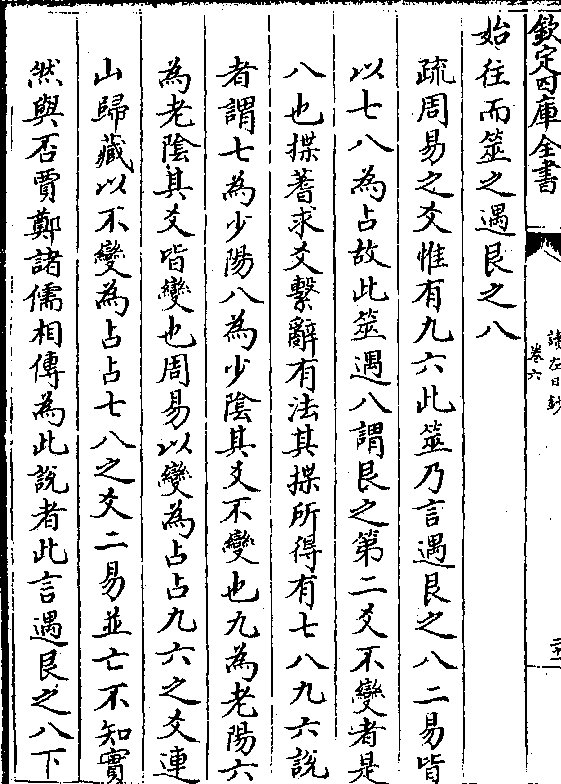 欽定四庫全書
讀左日鈔
卷六
始往而筮之遇艮之八
疏周易之爻惟有九六此筮乃言遇艮之八二易皆
以七八為占故此筮遇八謂艮之第二爻不變者是
八也揲蓍求爻繫辭有法其揲所得有七八九六說
者謂七為少陽八為少陰其爻不變也九為老陽六
為老陰其爻皆變也周易以變為占占九六之爻連
山歸藏以不變為占占七八之爻二易並亡不知實
然與否賈鄭諸儒相傳為此說者此言遇艮之八下